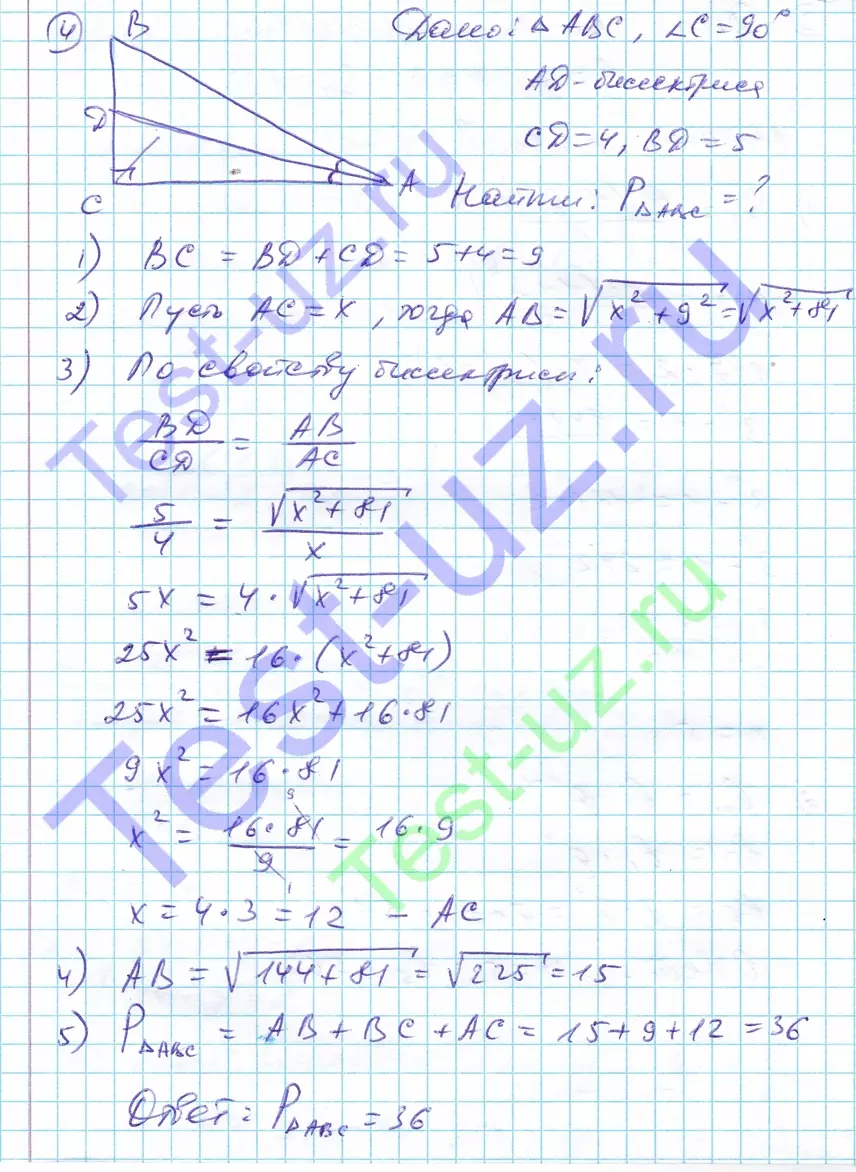 4
B
Дано: △ ABC, ∠C = 90°
D
AD - биссектриса
CD = 4, BD = 5
A
C
Найти: P△ABC = ?
1) BC = BD + CD = 5+4 = 9
2) Пусть AC = x, тогда AB = √(x² + 9²) = √(x² + 81)
3) По свойству биссектрисы:
BD/CD = AB/AC
5/4 = √(x² + 81)/x
5x = 4 · √(x² + 81)
25x² = 16 · (x² + 81)
25x² = 16x² + 16 · 81
9x² = 16 · 81
9
x² = 16 · 81/9 = 16 · 9
1
x = 4 · 3 = 12 - AC
4) AB = √(144 + 81) = √225 = 15
5) P△ABC = AB + BC + AC = 15 + 9 + 12 = 36
Ответ: P△ABC = 36
Test-uz.ru
Test-uz.ru
Test-uz.ru